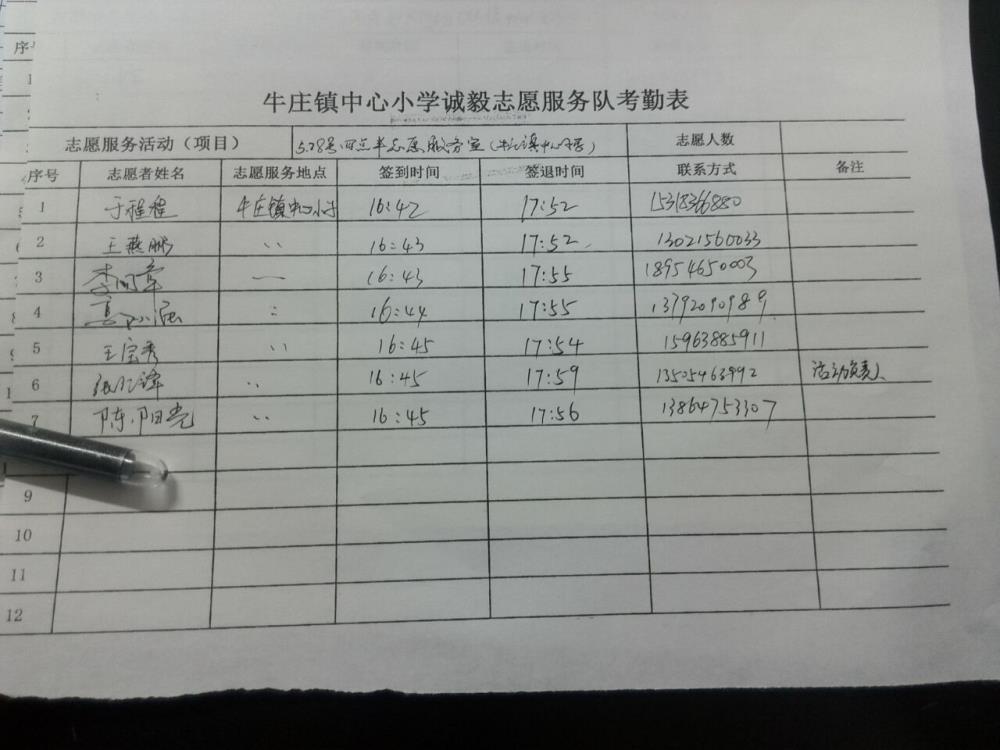 牛庄镇中心小学诚毅志愿服务队考勤表
志愿服务活动（项目） 5.28号四点半志愿服务室（牛庄镇中心小学） 志愿人数
序号 志愿者姓名 志愿服务地点 签到时间 签退时间 联系方式 备注
1 于程程 牛庄镇中心小学 16:42 17:52 15318366880
2 王燕鹏 〃 16:43 17:52 13021560033
3 16:43 17:55 18954650003
4 〃 16:44 17:55 13792090989
5 王宝秀 〃 16:45 17:54 15963885911
6 〃 16:45 17:59 13505463992 活动负责人
7 陈阳光 〃 16:45 17:56 13864753307
9
10
11
12